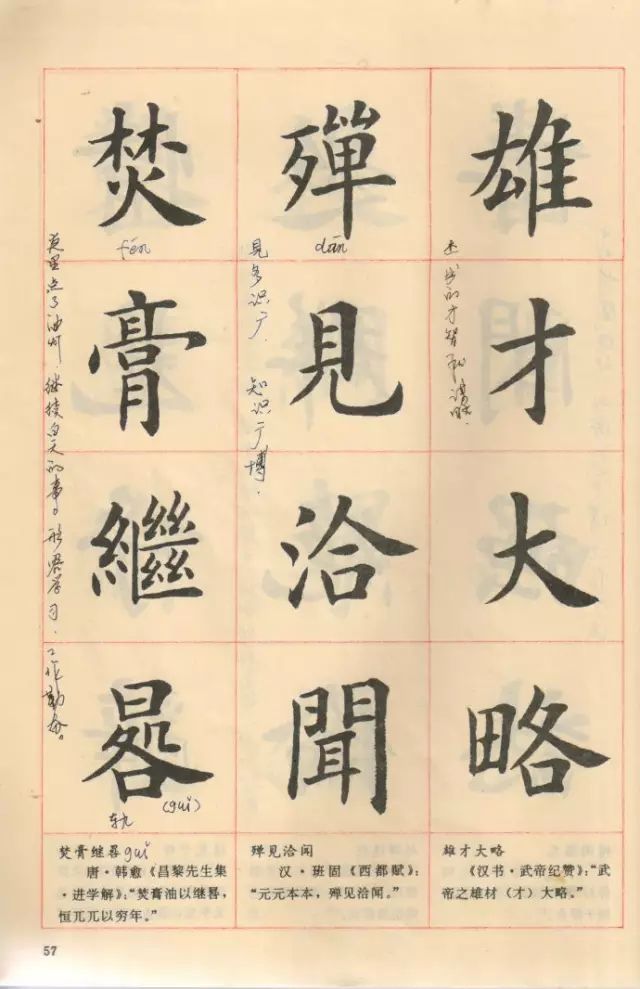 雄才大略
杰出的才智和谋略.
殫見洽聞
dān
见多识广. 知识广博.
焚膏繼晷
fén
轨 (guǐ)
夜里点了油灯 继续白天的事。形容学习.工作勤奋。
雄才大略
《汉书·武帝纪赞》：“武
帝之雄材（才）大略。”
殚见洽闻
汉·班固《西都赋》：
“元元本本，殚见洽闻。”
焚膏继晷 guǐ
唐·韩愈《昌黎先生集
·进学解》：“焚膏油以继晷，
恒兀兀以穷年。”
57